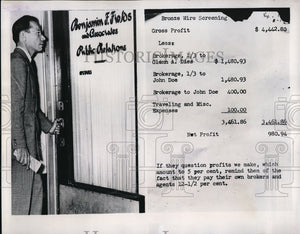 Benjamin F. Fields
and Associates
Public Relations
Bronze Wire Screening
Gross Profit $ 4,442.80
Less:
Brokerage, 1/3 to
Glenn A. Dies $ 1,480.93
Brokerage, 1/3 to
John Doe 1,480.93
Brokerage to John Doe 400.00
Traveling and Misc.
Expenses 100.00
3,461.86 3,461.86
Net Profit 980.94
If they question profits we make, which
amount to 5 per cent, remind them of the
fact that they pay their own brokers and
agents 12-1/2 per cent.